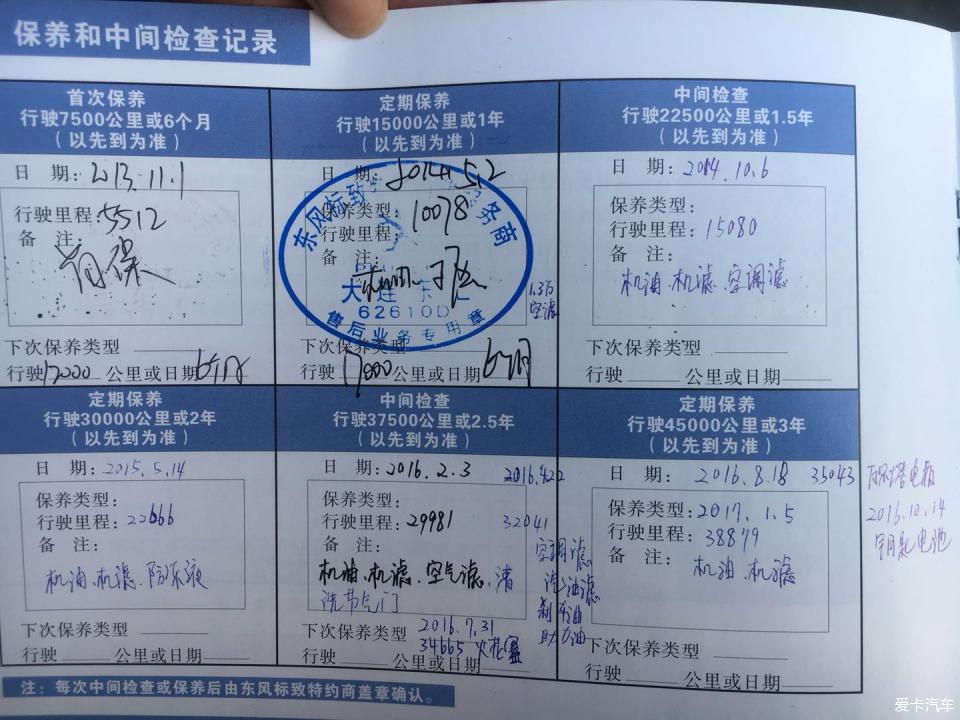 保养和中间检查记录
首次保养
行驶7500公里或6个月
(以先到为准)
日 期: 2013.11.1
行驶里程: 5512
备 注:
首保
下次保养类型
行驶 公里或日期
定期保养
行驶15000公里或1年
(以先到为准)
日 期: 2014.5.2
保养类型:
行驶里程: 10078
备 注:
东风标致 务商
大连东
62610D
售后业务专用章
1.3万
空滤
下次保养类型
行驶 公里或日期 6个月
中间检查
行驶22500公里或1.5年
(以先到为准)
日 期: 2014.10.6
保养类型:
行驶里程: 15080
备 注:
机油.机滤.空调滤
下次保养类型
行驶 公里或日期
定期保养
行驶30000公里或2年
(以先到为准)
日 期: 2015.5.14
保养类型:
行驶里程: 22666
备 注:
机油.机滤.防冻液
下次保养类型
行驶 公里或日期
中间检查
行驶37500公里或2.5年
(以先到为准)
日 期: 2016.2.3
保养类型:
行驶里程: 29981
备 注:
机油.机滤.空气滤.清
洗节气门
2016.4.22
32041
空调滤
汽油滤
刹车油
助力油
下次保养类型 2016.7.31
34665 火花塞
行驶 公里或日期
定期保养
行驶45000公里或3年
(以先到为准)
日 期: 2016.8.18 35043
保养类型: 2017.1.5
行驶里程: 38879
备 注:
机油.机滤
下次保养类型
行驶 公里或日期
电瓶
2016.10.14
电池
注:每次中间检查或保养后由东风标致特约商盖章确认。
爱卡汽车